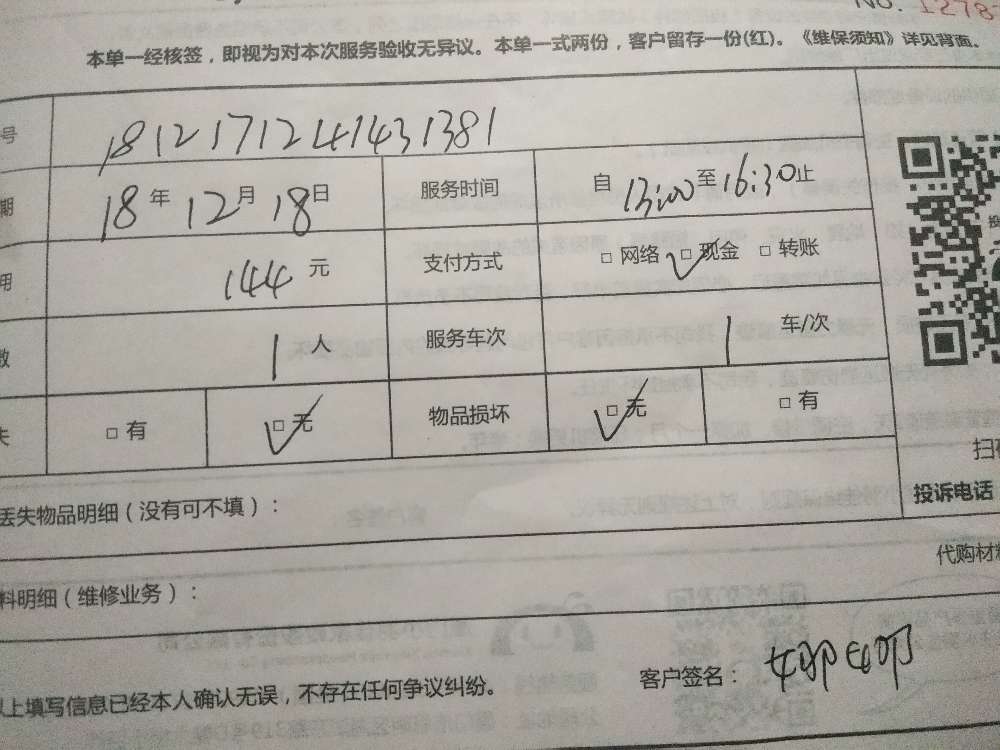 No. 1278
本单一经核签，即视为对本次服务验收无异议。本单一式两份，客户留存一份(红)。《维保须知》详见背面。
号 181217124141431381
期 18 年 12 月 18 日 服务时间 自 13:00 至 16:30 止
用 144 元 支付方式 □ 网络 □ 现金 □ 转账
数 1 人 服务车次 1 车/次
失 □ 有 □ 无 物品损坏 □ 无 □ 有
扫
丢失物品明细（没有可不填）： 投诉电话
代购材料
料明细（维修业务）：
以上填写信息已经本人确认无误，不存在任何争议纠纷。 客户签名：